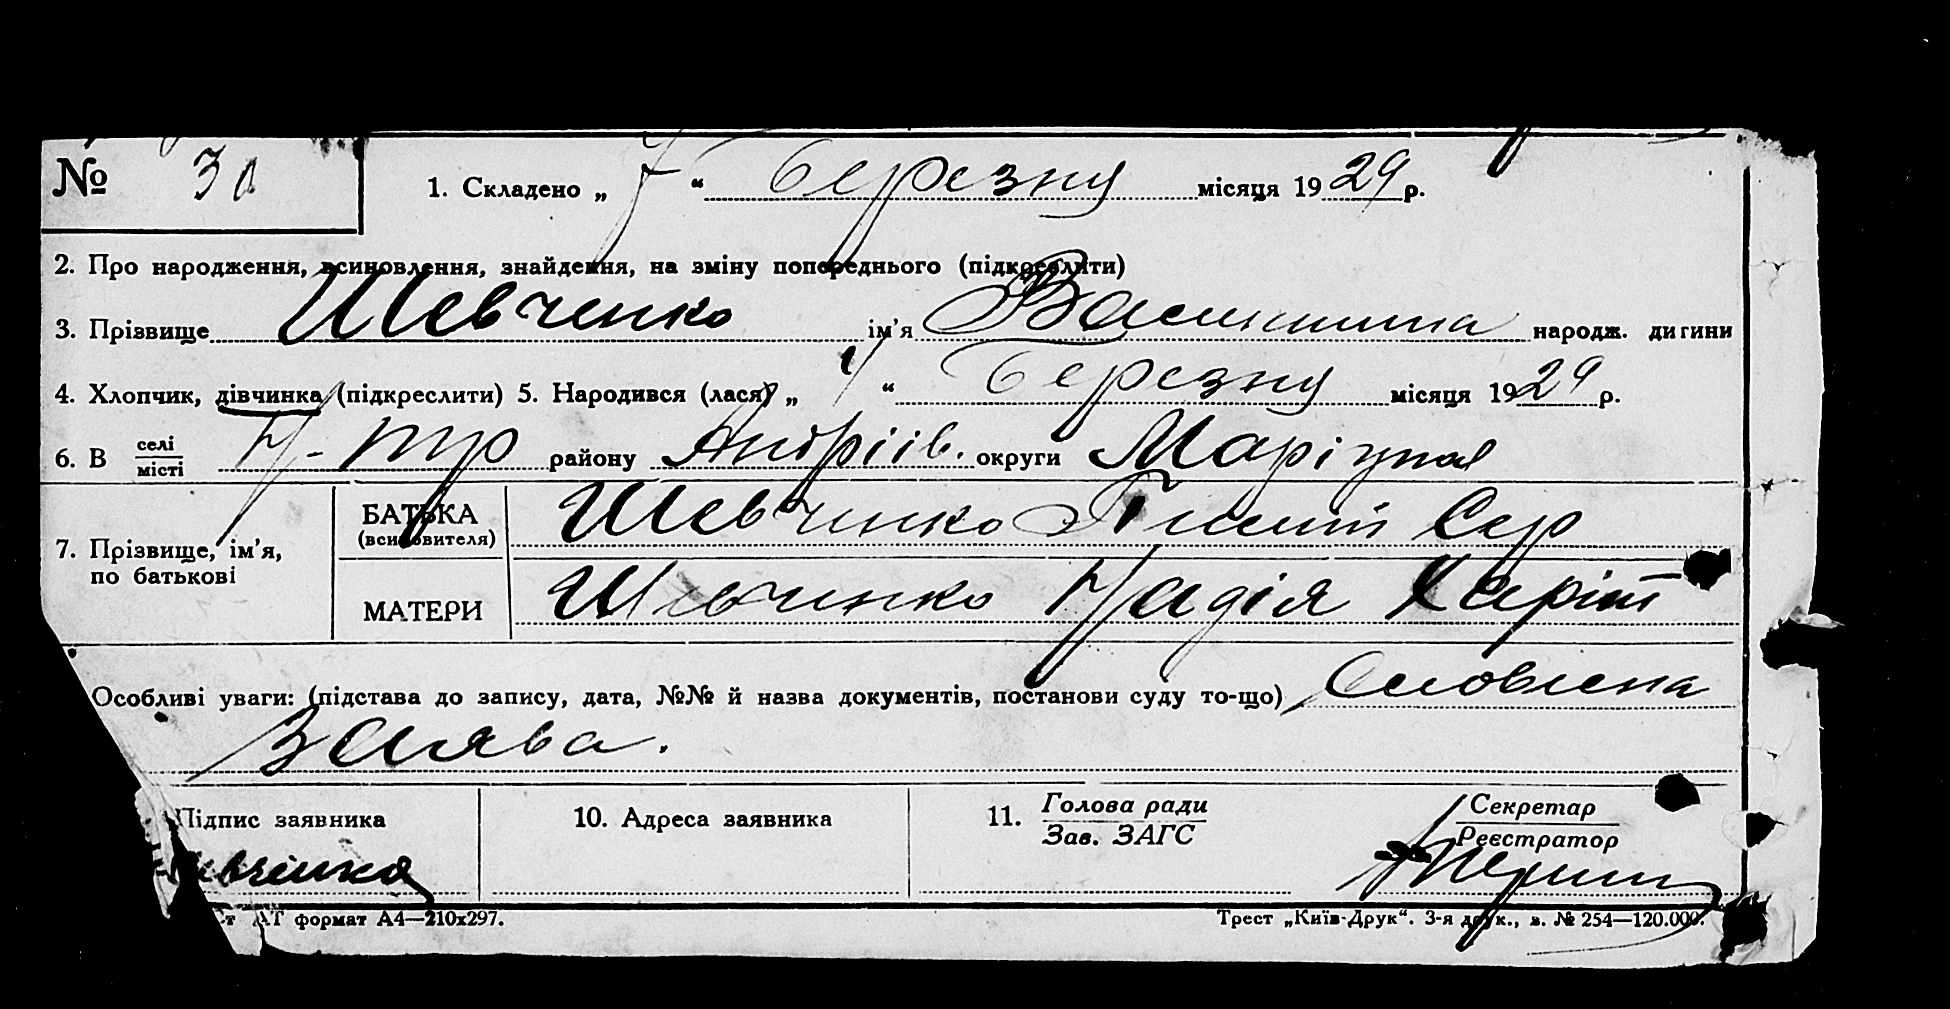 № 30 1. Складено „ 7 “ березну місяця 1929 р.
2. Про народження, всиновлення, знайдення, на зміну попереднього (підкреслити)
3. Прізвище Шевченко ім'я народж. дитини
4. Хлопчик, дівчинка (підкреслити) 5. Народився (лася) „ “ березну місяця 1929 р.
6. В селі/місті района Андріїв. округи Маріупол
7. Прізвище, ім'я, по батькові
БАТЬКА (всиновителя) Шевченко Гнат Сер
МАТЕРИ Шевченко Надія Харіт
Особливі уваги: (підстава до запису, дата, №№ й назва документів, постанови суду то-що) Словесна
заява.
Підпис заявника 10. Адреса заявника 11. Голова ради/Зав. ЗАГС Секретар/Реєстратор
евченко
формат А4—210х297. Трест „Київ-Друк“. 3-я друк., з. № 254—120.000.